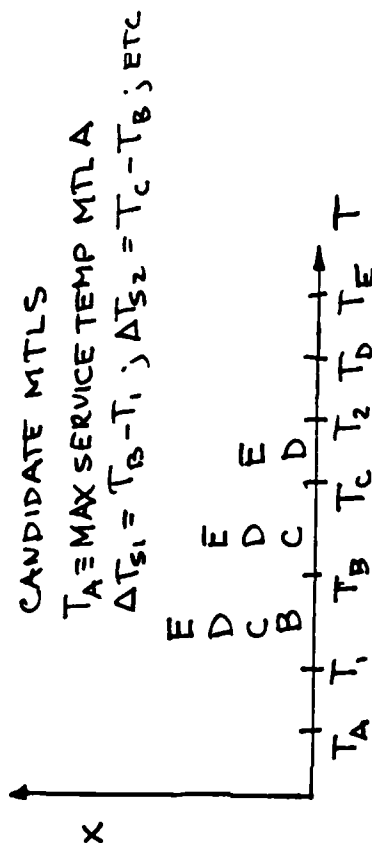 CANDIDATE MTLS
T_A ≡ MAX SERVICE TEMP MTL A
ΔT_S1 = T_B - T_1 ; ΔT_S2 = T_C - T_B ; ETC
X
E
D E
C D E
B C D
T_A T_1 T_B T_C T_2 T_D T_E T